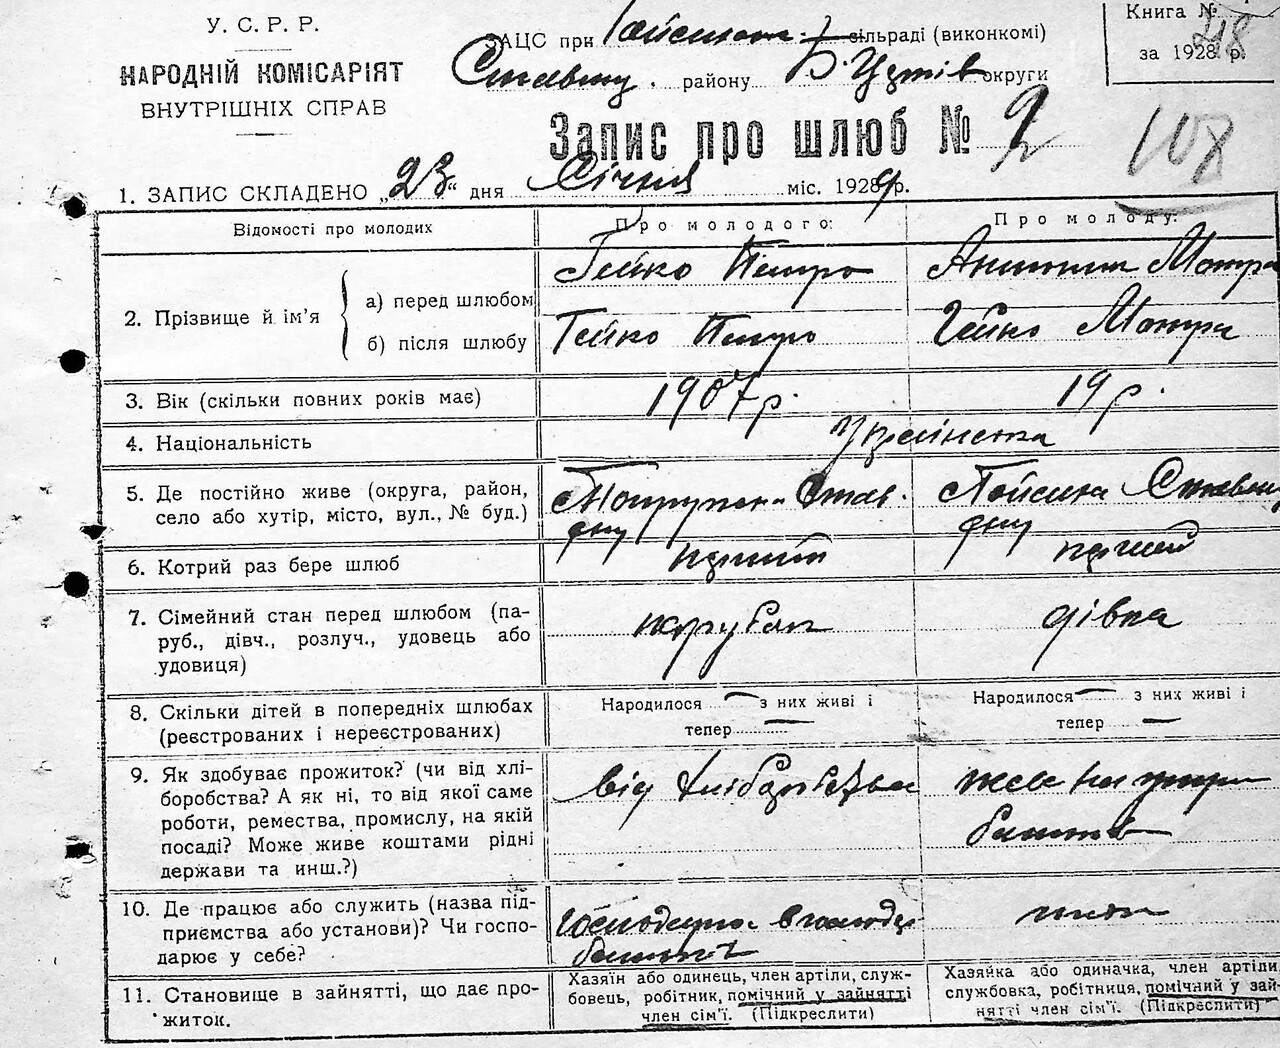 У. С. Р. Р.
НАРОДНІЙ КОМІСАРІЯТ
ВНУТРІШНІХ СПРАВ
ЗАЦС при сільраді (виконкомі)
району Б. Церків округи
Книга №
за 1928 р.
218
Запис про шлюб № 2
108
1. ЗАПИС СКЛАДЕНО „23“ дня Січня міс. 1929 р.
Відомості про молодих
Про молодого:
Про молоду:
2. Прізвище й ім’я
а) перед шлюбом
Гейко Петро
Мотря
б) після шлюбу
Гейко Петро
Гейко Мотря
3. Вік (скільки повних років має)
1907 р.
19 р.
4. Національність
Українська
5. Де постійно живе (округа, район,
село або хутір, місто, вул., № буд.)
6. Котрий раз бере шлюб
перший
перший
7. Сімейний стан перед шлюбом (па-
руб., дівч., розлуч., удовець або
удовиця)
парубок
дівка
8. Скільки дітей в попередніх шлюбах
(реєстрованих і нереєстрованих)
Народилося — з них живі і
тепер —
Народилося — з них живі і
тепер —
9. Як здобуває прожиток? (чи від хлі-
боробства? А як ні, то від якої саме
роботи, ремества, промислу, на якій
посаді? Може живе коштами рідні
держави та инш.?)
від хліборобства
10. Де працює або служить (назва під-
приємства або установи)? Чи госпо-
дарює у себе?
11. Становище в зайнятті, що дає про-
житок.
Хазяїн або одинець, член артіли, служ-
бовець, робітник, помічний у зайнятті
член сім’ї. (Підкреслити)
Хазяйка або одиначка, член артіли
службовка, робітниця, помічний у зай-
нятті член сім’ї. (Підкреслити)